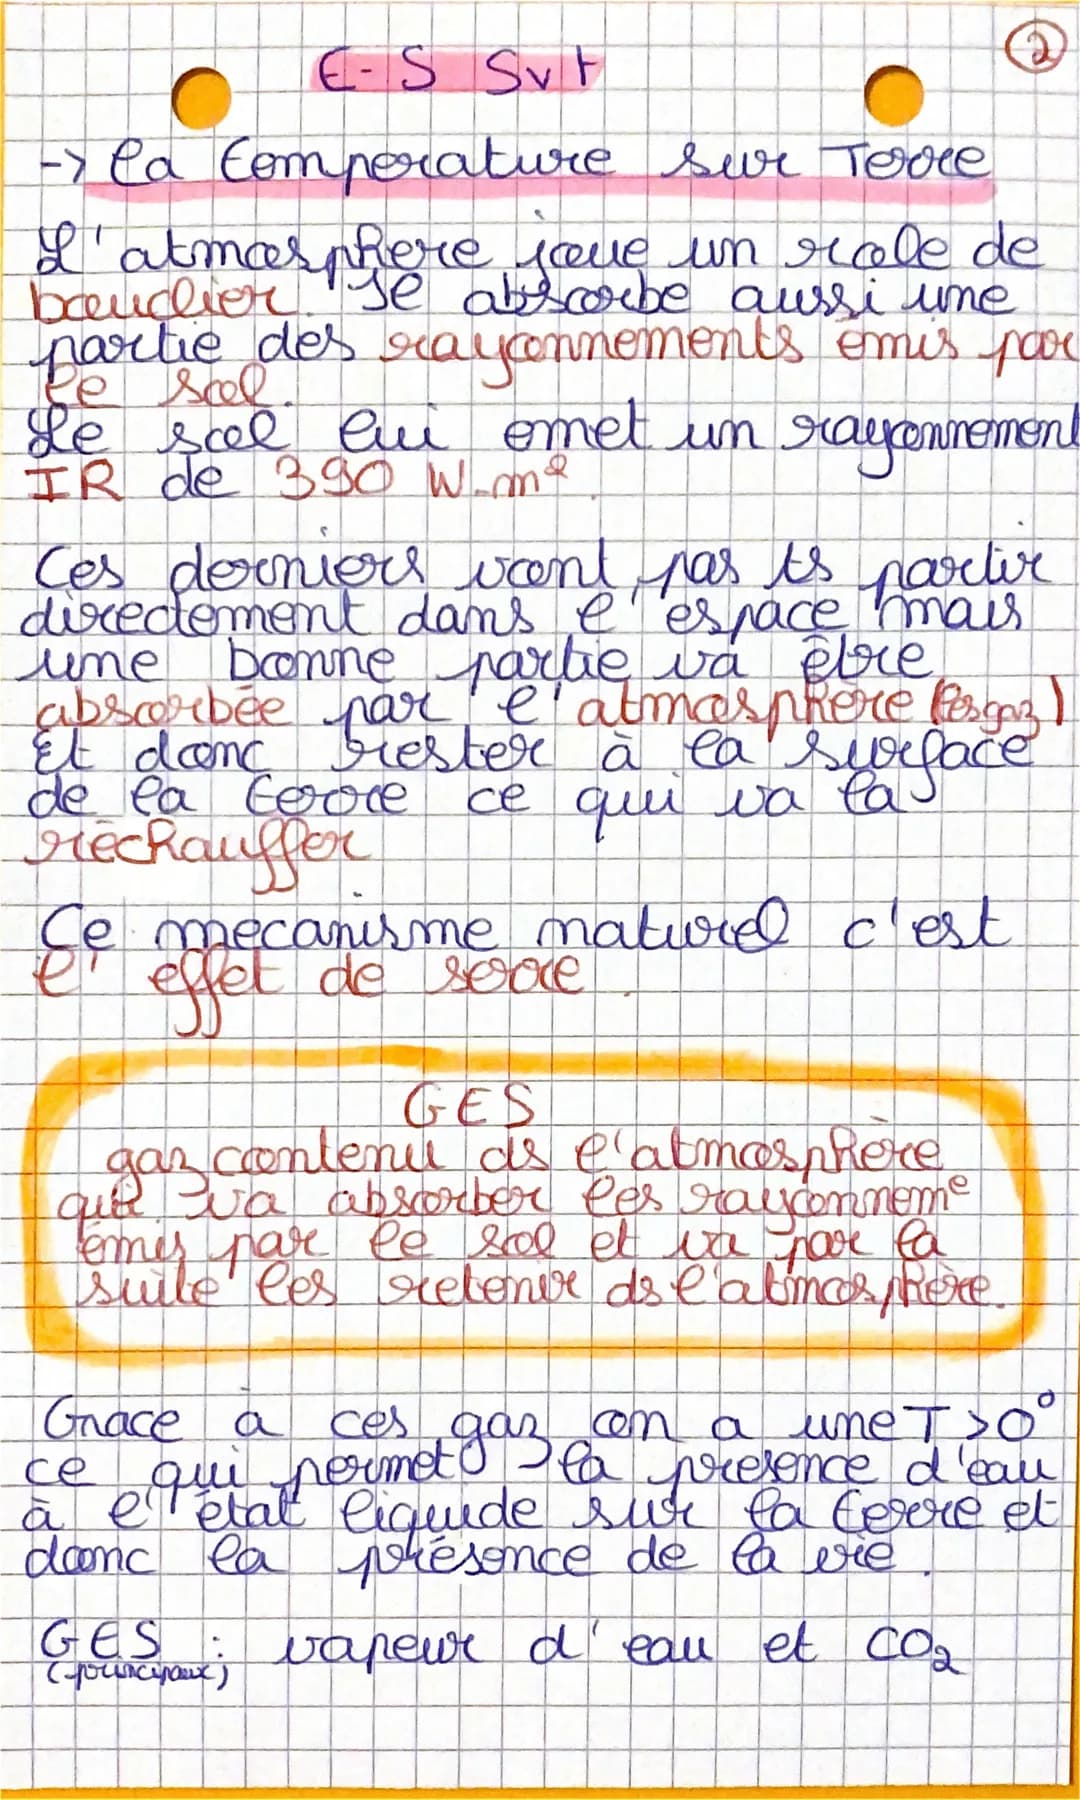 E-S Svt
2
-> la temperature sur Terre
L'atmosphere joue un role de
bouclier. Il absorbe aussi une
partie des rayonnements émis par
le sol.
Le sol lui emet un rayonnement
IR de 390 W.m²
Ces derniers vont pas ts partir
directement dans l'espace mais
une bonne partie va être
absorbée par l'atmosphère (les gaz)
Et donc rester à la surface
de la terre ce qui va la
réchauffer
Ce mecanisme naturel c'est
l'effet de serre.
GES
gaz contenu ds l'atmosphère
qui va absorber les rayonneme
émis par le sol et va par la
suite les retenir ds l'atmosphère.
Grace à ces gaz on a une T>0°
ce qui permet la presence d'eau
à l'état liquide sur la terre et
donc la présence de la vie.
GES : vapeur d'eau et CO₂
(principaux)